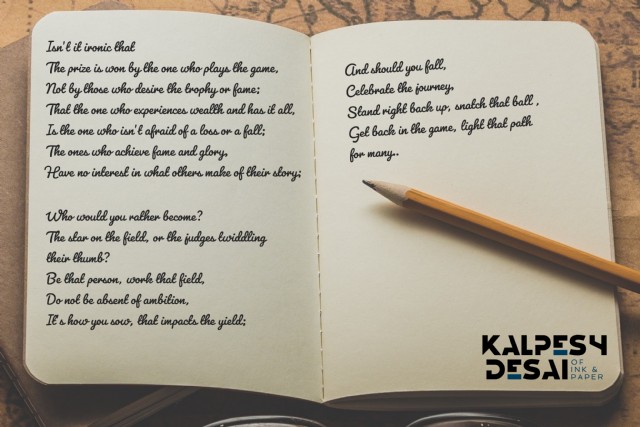 Isn't it ironic that
The prize is won by the one who plays the game,
Not by those who desire the trophy or fame;
That the one who experiences wealth and has it all,
Is the one who isn't afraid of a loss or a fall;
The ones who achieve fame and glory,
Have no interest in what others make of their story;
Who would you rather become?
The star on the field, or the judges twiddling
their thumb?
Be that person, work that field,
Do not be absent of ambition,
It's how you sow, that impacts the yield;
And should you fall,
Celebrate the journey,
Stand right back up, snatch that ball ,
Get back in the game, light that path
for many..
KALPESH
DESAI OF
INK &
PAPER